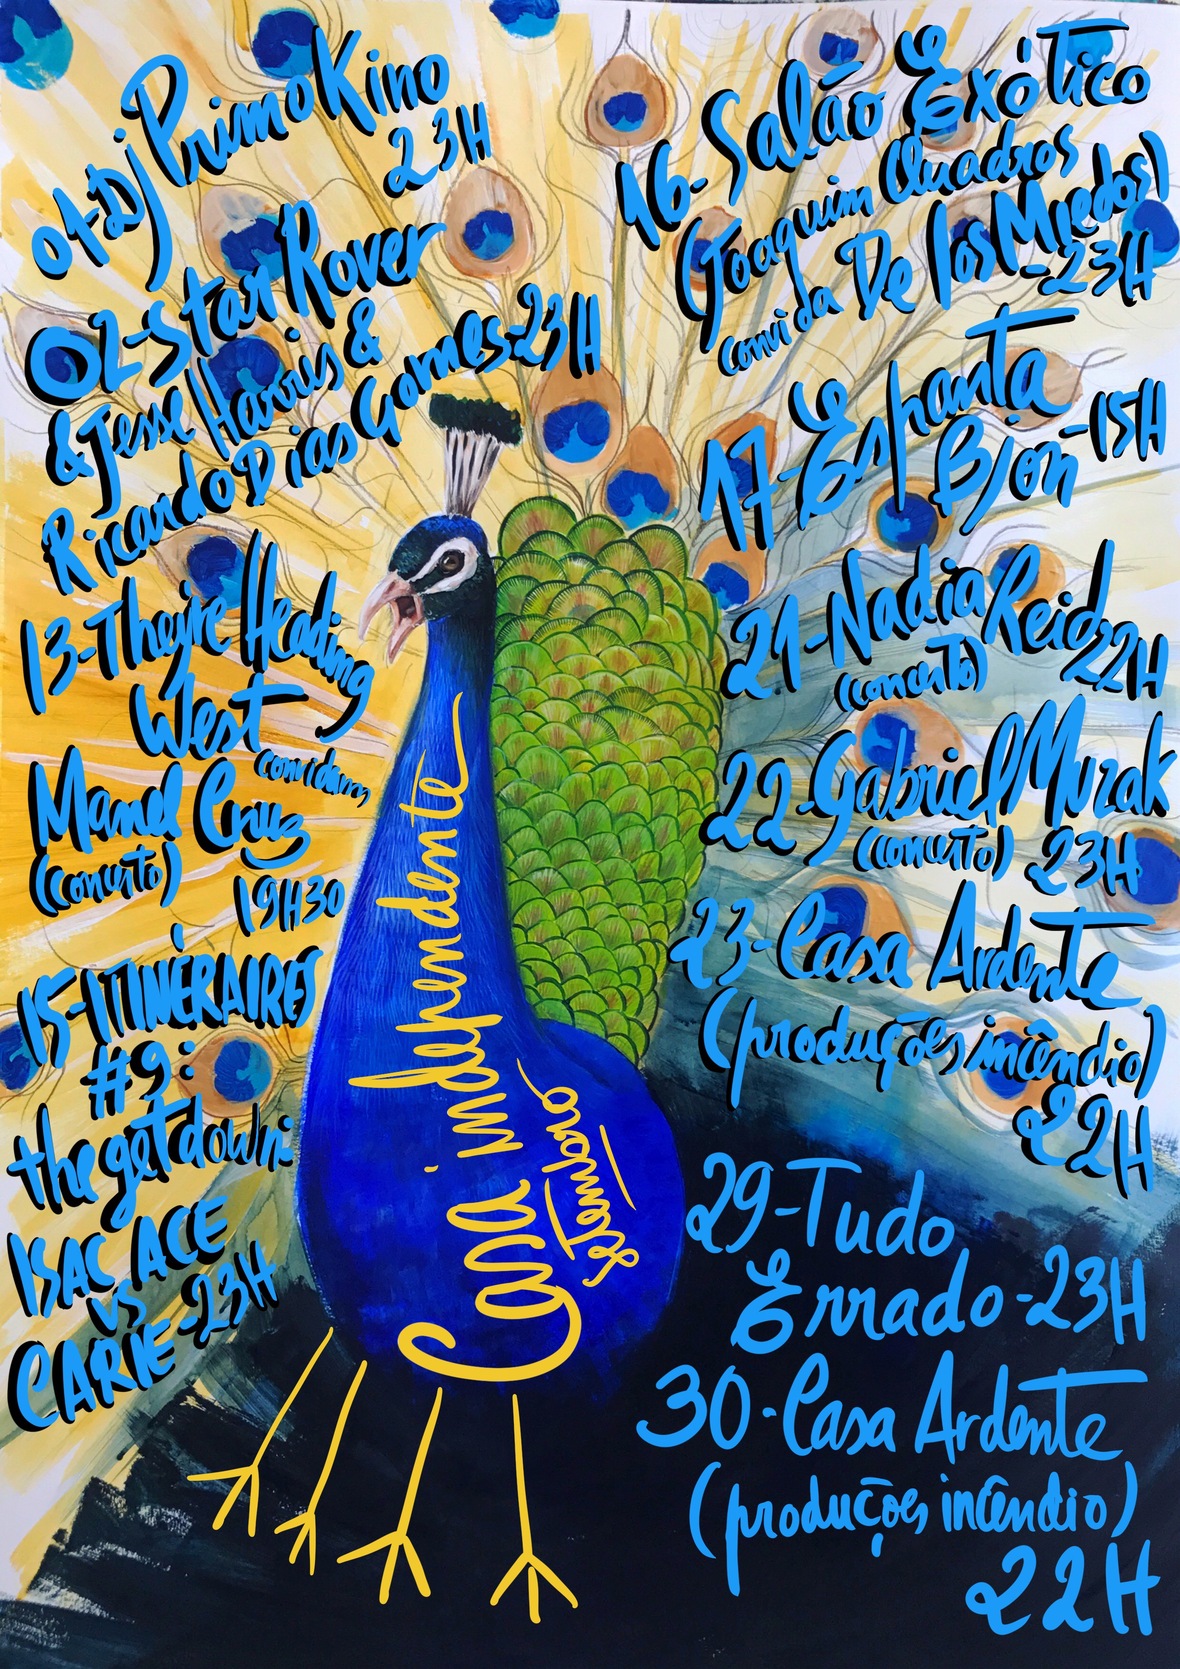 01-Dj Primo Kino
23H
02-Star Rover
& Jesse Harris &
Ricardo Dias Gomes-23H
13-They're Heading
West
convidam
Manel Cruz
(concerto)
19H30
15-ITINÉRAIRES
#9:
the get down:
ISAC ACE
VS
CARIE-23H
Casa independente
setembro
16-Salão Exótico
(Joaquim Quadros
convida De los Miedos)
-23H
17-Espanta
Bjon-15H
21-Nadia Reid
(concerto) 22H
22-Gabriel Muzak
(concerto) 23H
23-Casa Ardente
(produções incêndio)
22H
29-Tudo
Errado-23H
30-Casa Ardente
(produções incêndio)
22H